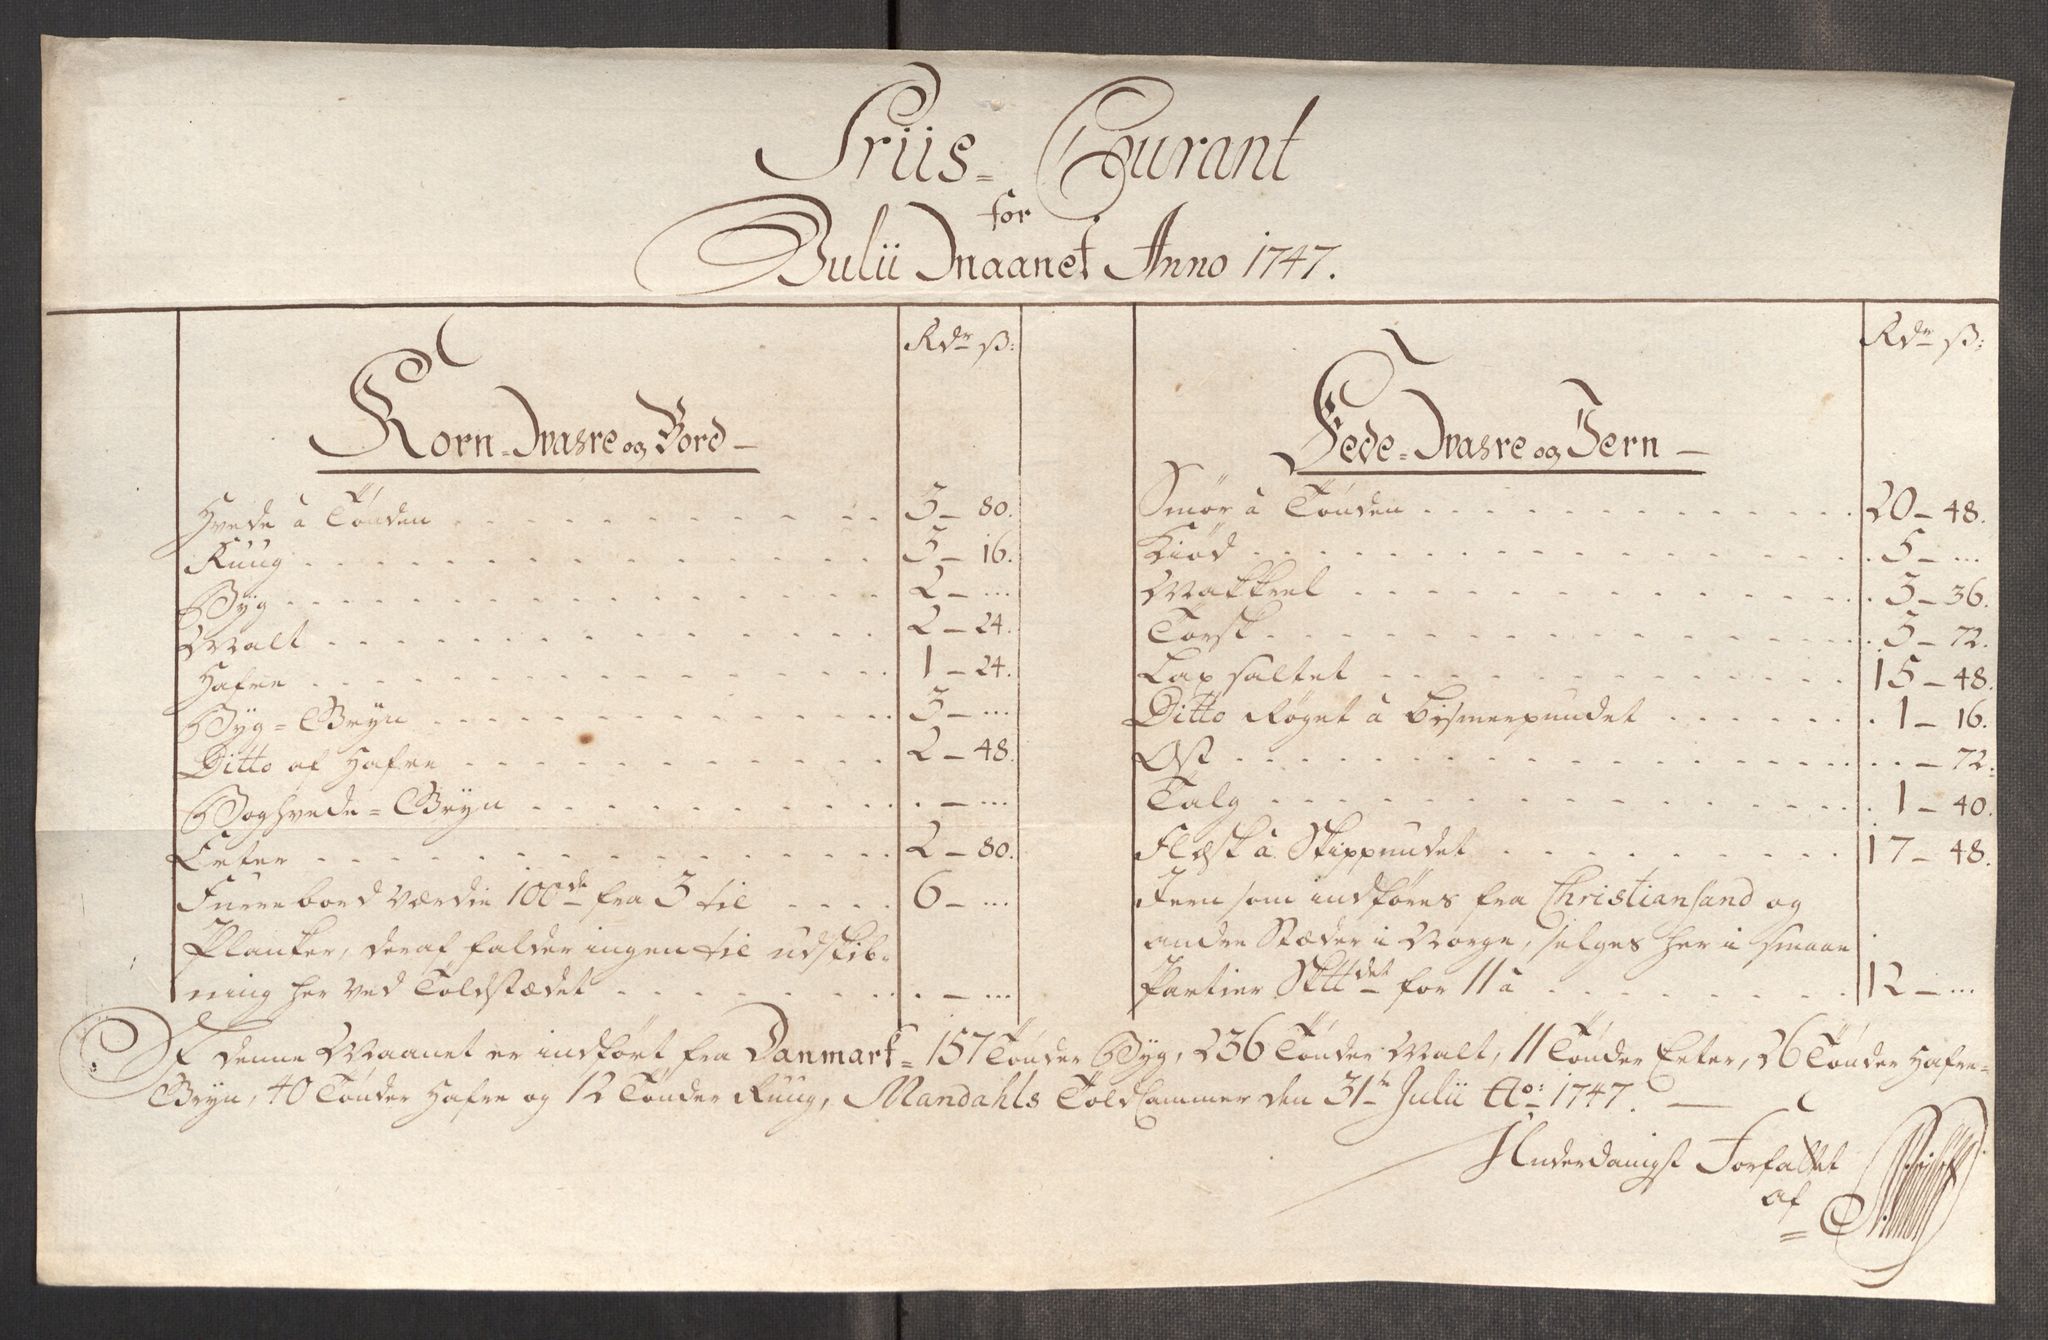 Priis- Courant
for
Julii Maanet Anno 1747.
Rdr ß:
Korn-Waare og Bord
Hvede à Tönden 3 - 80.
Ruug 3 - 16.
Byg 2 - ...
Malt 2 - 24.
Hafre 1 - 24.
Byg-Gryn 3 - ...
Ditto af Hafre 2 - 48.
Boghvede-Gryn . - ...
Erter 2 - 80.
Furrebord værdie 100de fra 3 til 6 - ...
Planker, deraf falder ingen til udskib-
ning her ved Toldstædet . - ...
Rdr ß:
Fede-Waare og Jern
Smör à Tönden 20 - 48.
Kiöd 5 - ...
Makkrel 3 - 36.
Torsk 3 - 72.
Lax saltet 15 - 48.
Ditto Röget à Bismerpundet 1 - 16.
Ost . - 72.
Talg 1 - 40.
Flæsk à Skippundet 17 - 48.
Jern som indföres fra Christiansand og
andre Stæder i Norge, selges her i smaae
Partier Sk℔det for 11 à 12 - ...
I denne Maanet er indfört fra Danmark- 157 Tönder Byg, 236 Tönder Malt, 11 Tönder Erter, 26 Tönder Hafre-
Gryn, 40 Tönder Hafre og 12 Tönder Ruug, Mandahls Toldkammer den 31te Julii Ao: 1747.
Underdanigst Forfattet
af